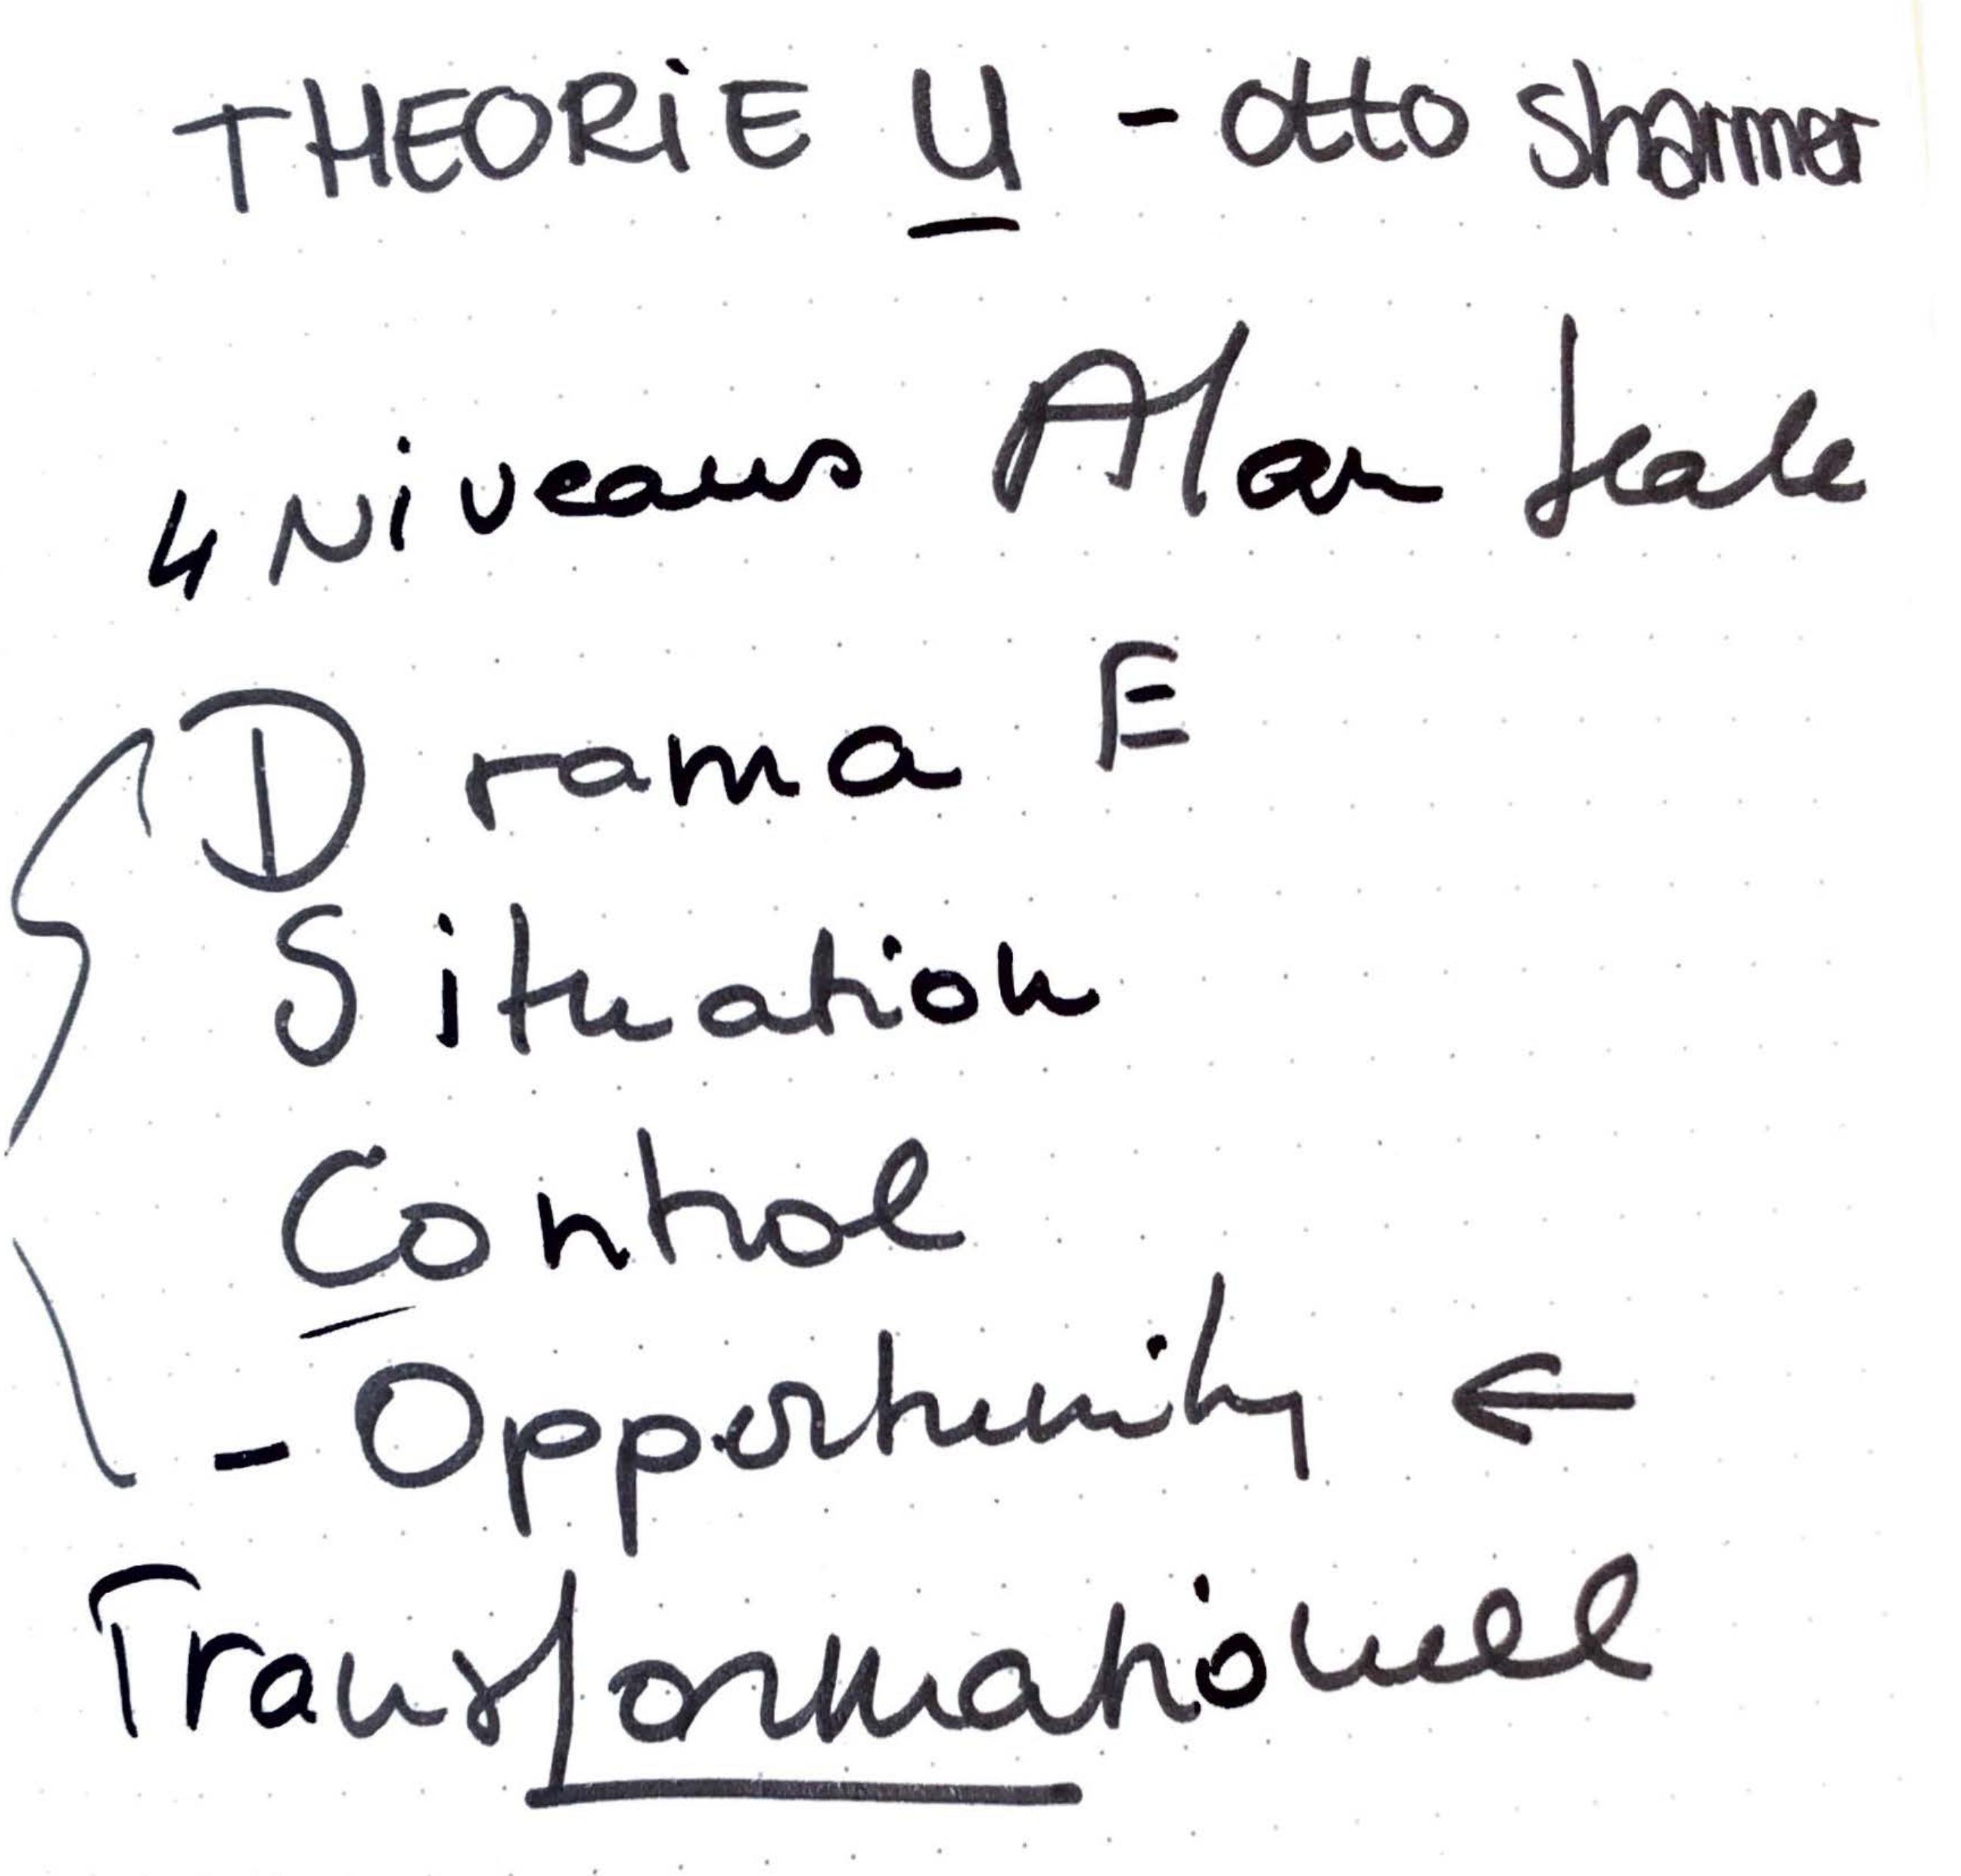 THEORIE U - Otto Sharmer
4 Niveaus Alan Seale
Drama E
Situation
Control
- Opportunity ←
Transformationell